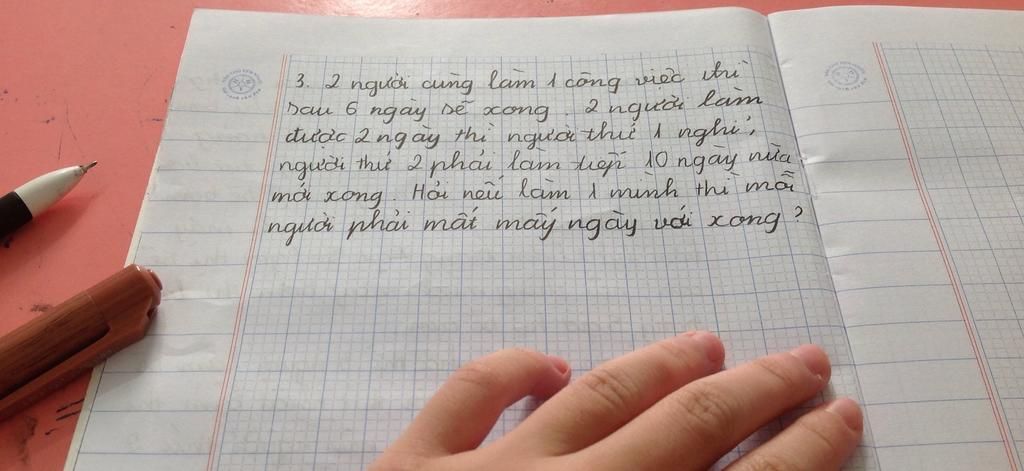 3. 2 người cùng làm 1 công việc thì
sau 6 ngày sẽ xong. 2 người làm
được 2 ngày thì người thứ 1 nghỉ,
người thứ 2 phải làm tiếp 10 ngày nữa
mới xong. Hỏi nếu làm 1 mình thì mỗi
người phải mất mấy ngày với xong?